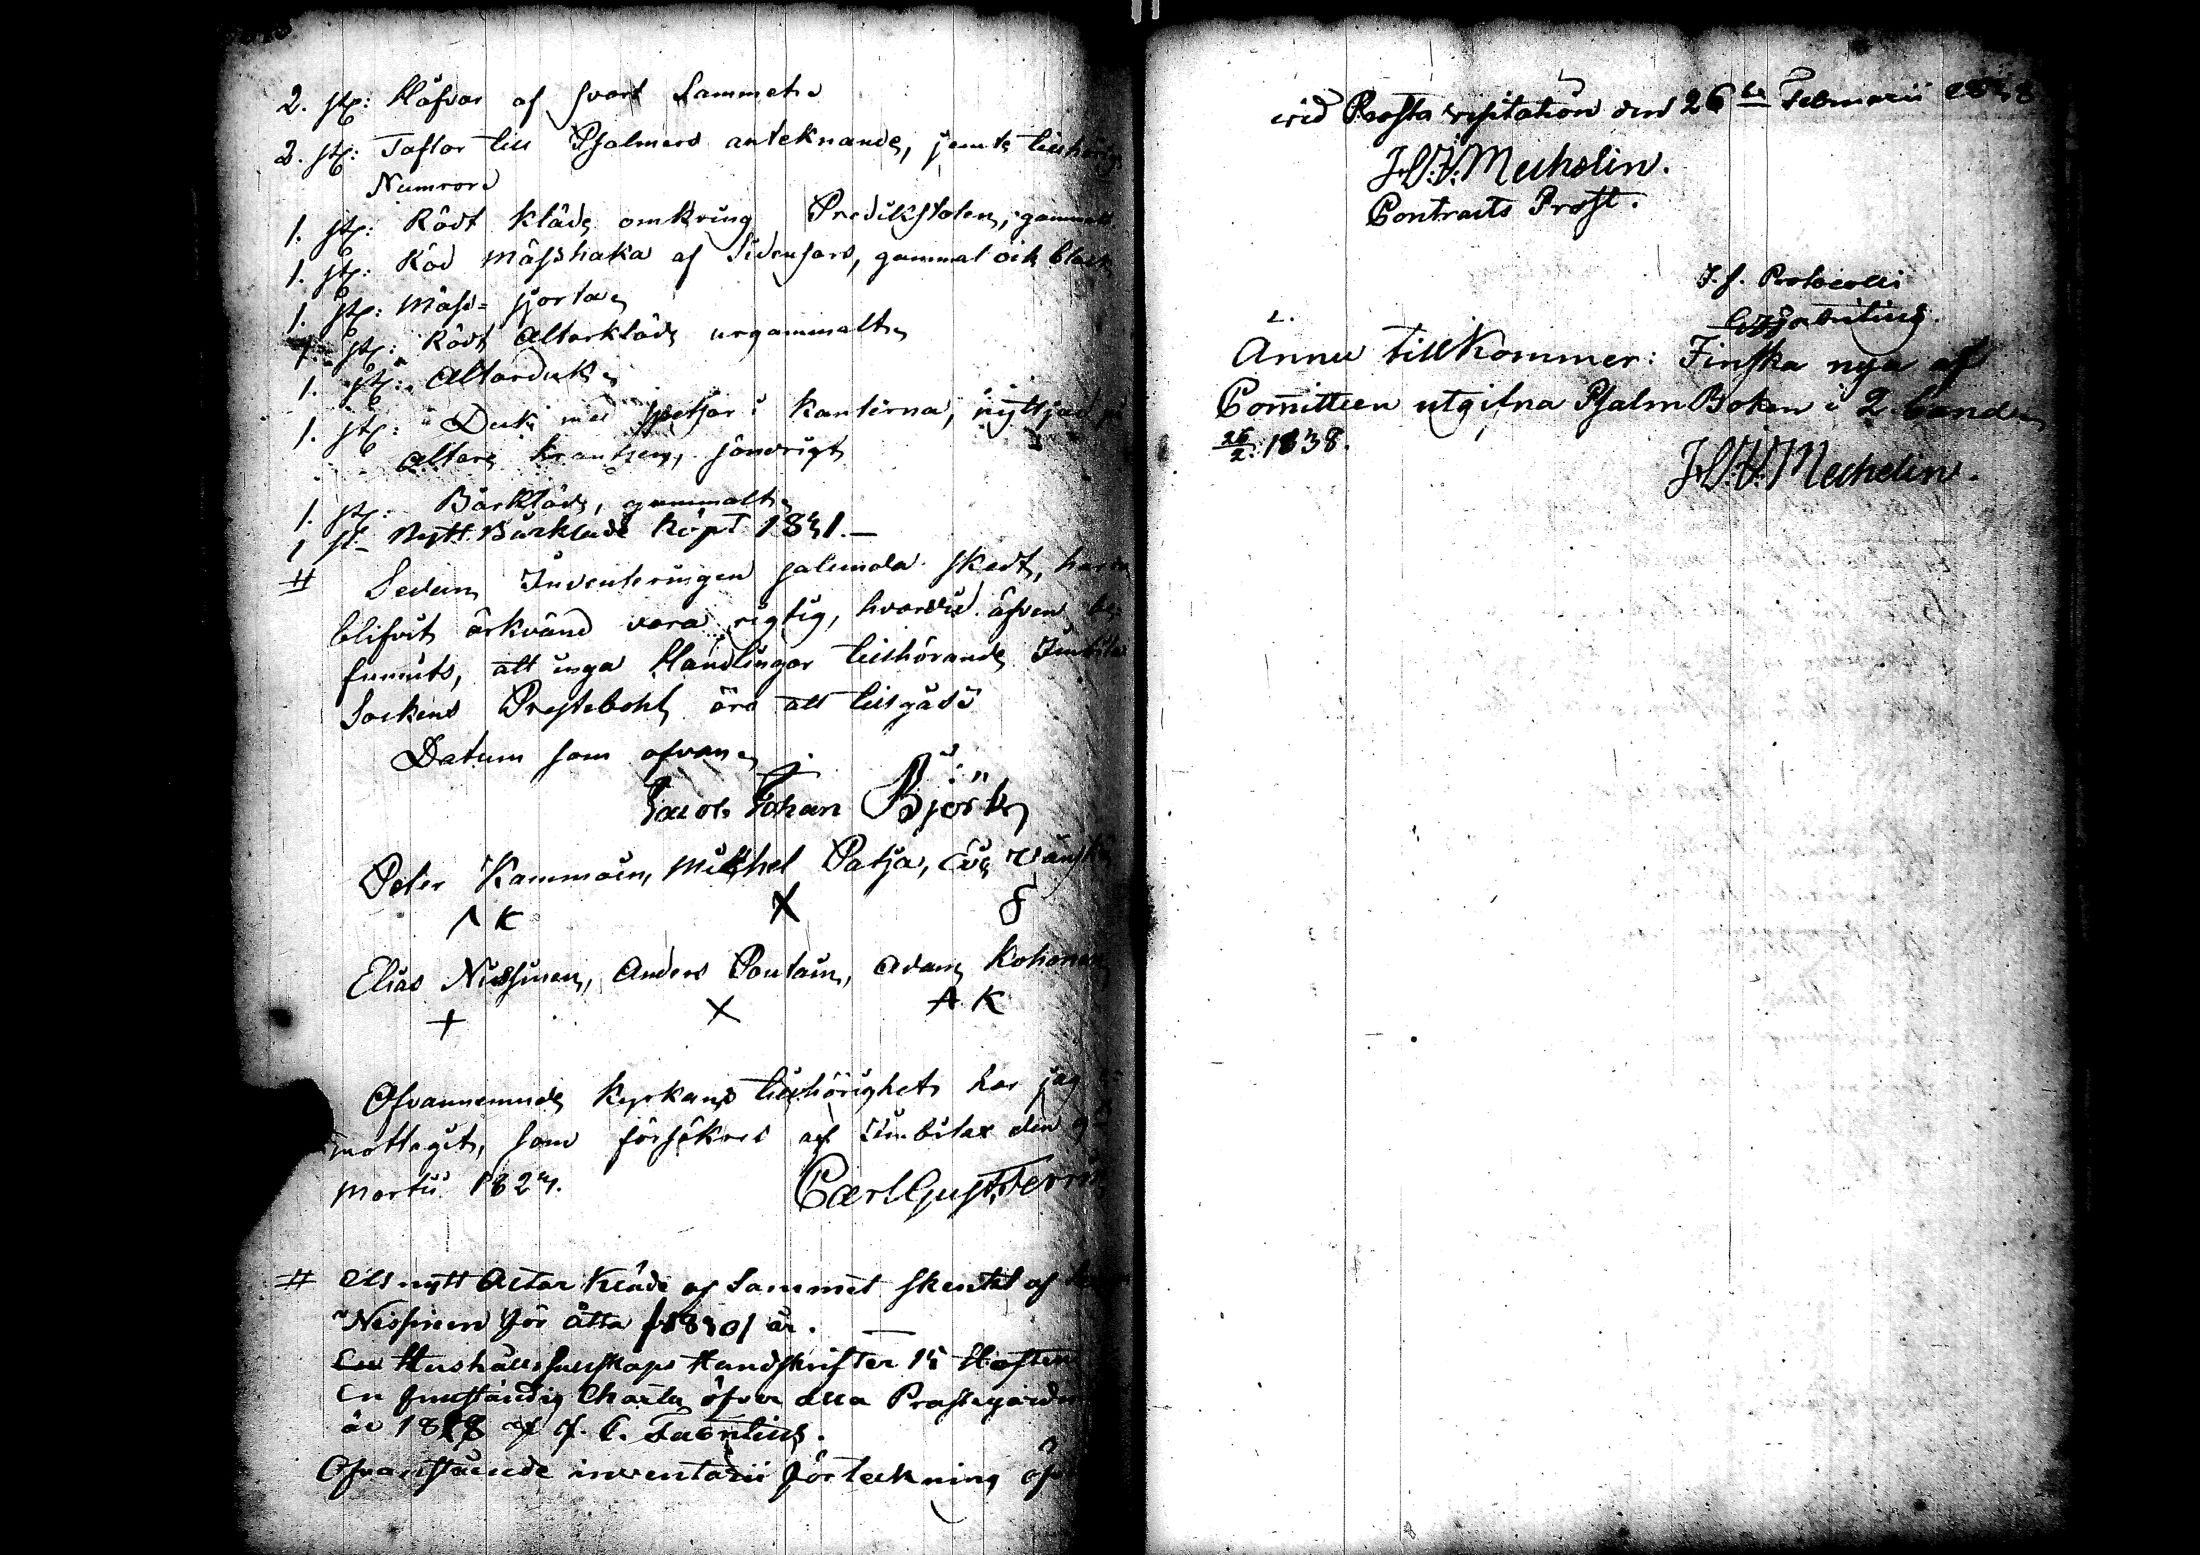 2. st: Håfvar af svart Sammet
2. st: Taflor till Psalmers anteknande, jemte tillhörig
Numror
1. st: Rödt kläde omkring Predikstolen, gammalt
1. st: Röd Mässhaka af Sidensars, gammal och
1. st: Mäss-sjorta
1. st: Rödt Altarkläde urgammalt
1. st: Altarduk
1. st: Duk med spetsar i kanterna, nyttjad på
Altare kransen, sönrigt
1. st: Bårkläde, gammalt
1 st- Nytt Bårkläde köpt 1831.—
# Sedan Inventeringen salunda skedt,
blifvit ärkänd vara rigtig, hvarvid äfven be-
funnits, att inga Handlingar tillhörande Imbilax
Sockens Prestebohl äro att tillgå
Datum som ofvan
Jacob Johan Björk
Peter Kammoin, Michel Patja,
Λ K X
Elias Nissinen, Anders Pontain, Adam Kohonen
+ X A K
Ofvannemnde kyrkans tillhörighet har jag
mottagit, som försäkras af Imbilax den 9
Martii 1827.
Carl Gust.
# Ett nytt Altar Kläde af Sammet skenkt af
Nissinen för åtta /1830/ år.
En Hushålls sällskaps Handskrifter 15 Häften
En fullständig Charta öfver alla Prestegården
år 18 af J. C.
Ofvanstående inventarii förteckning
vid Prosta visitation den 26te Februarii 1838
J.H.V. Mechelin.
Contracts Prost.
Protocolli
Ännu tillkommer: Finska nya af
Comitteen utgifna Psalm Boken i 2 band
26/2 1838.
J.H.V. Mechelin.